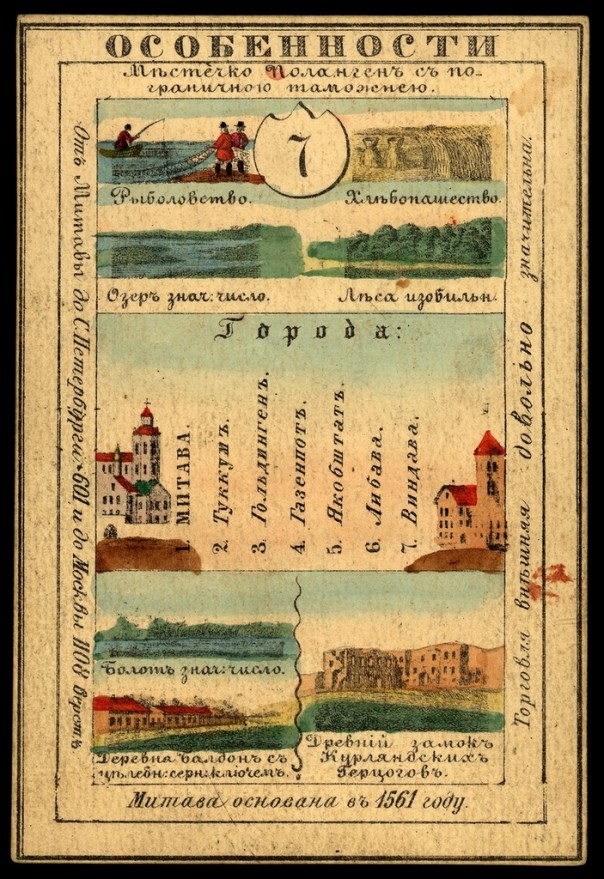 ОСОБЕННОСТИ
Мѣстечко Полангенъ съ по-
граничною таможнею.
7
Рыболовство.
Хлѣбопашество.
Озеръ знач: число.
Лѣса изобильн.
Города:
1. МИТАВА.
2. Туккумъ.
3. Гольдингенъ.
4. Газенпотъ.
5. Якобштатъ.
6. Либава.
7. Виндава.
Болотъ знач: число.
Деревня Балдонъ съ
цѣлебн: серн: ключемъ.
Древній замокъ
Курляндскихъ
Герцоговъ.
Отъ Митавы до С.Петербурга 601, и до Москвы 1108 верстъ
Торговля внѣшняя довольно значительна.
Митава основана въ 1561 году.